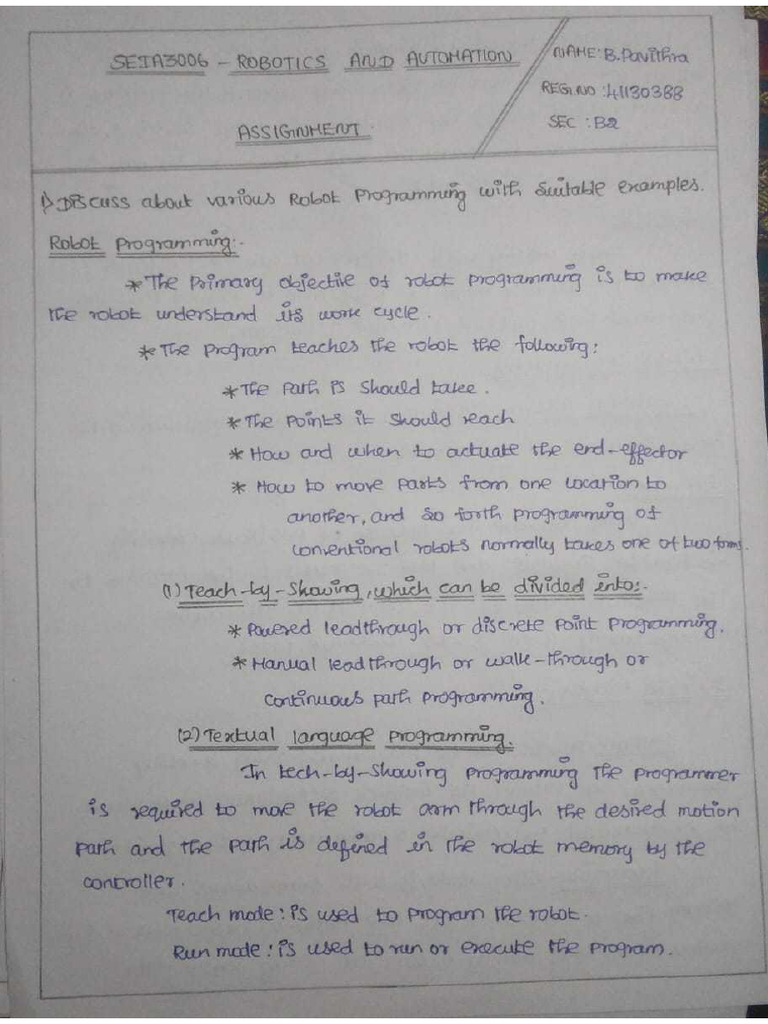 SEIA3006 - ROBOTICS AND AUTOMATION
NAME: B.Pavithra
REGI NO: 41130388
SEC : B2
ASSIGNMENT
1) Discuss about various Robot Programming with Suitable examples.
Robot Programming:-
* The Primary objective of robot programming is to make
the robot understand its work cycle.
* The Program teaches the robot the following:
* The Path is should take.
* The Points it should reach
* How and when to actuate the end-effector
* How to move Parts from one location to
another, and so forth programming of
conventional robots normally takes one of two forms.
(1) Teach-by-Showing, which can be divided into:-
* Powered leadthrough or discrete Point Programming.
* Manual leadthrough or walk-through or
Continuous path Programming.
(2) Textual language programming.
In tech-by-Showing Programming The Programmer
is required to move the robot arm through the desired motion
Path and the Path is defined in the robot memory by the
controller.
Teach mode : is used to Program the robot.
Run mode : is used to run or execute the Program.